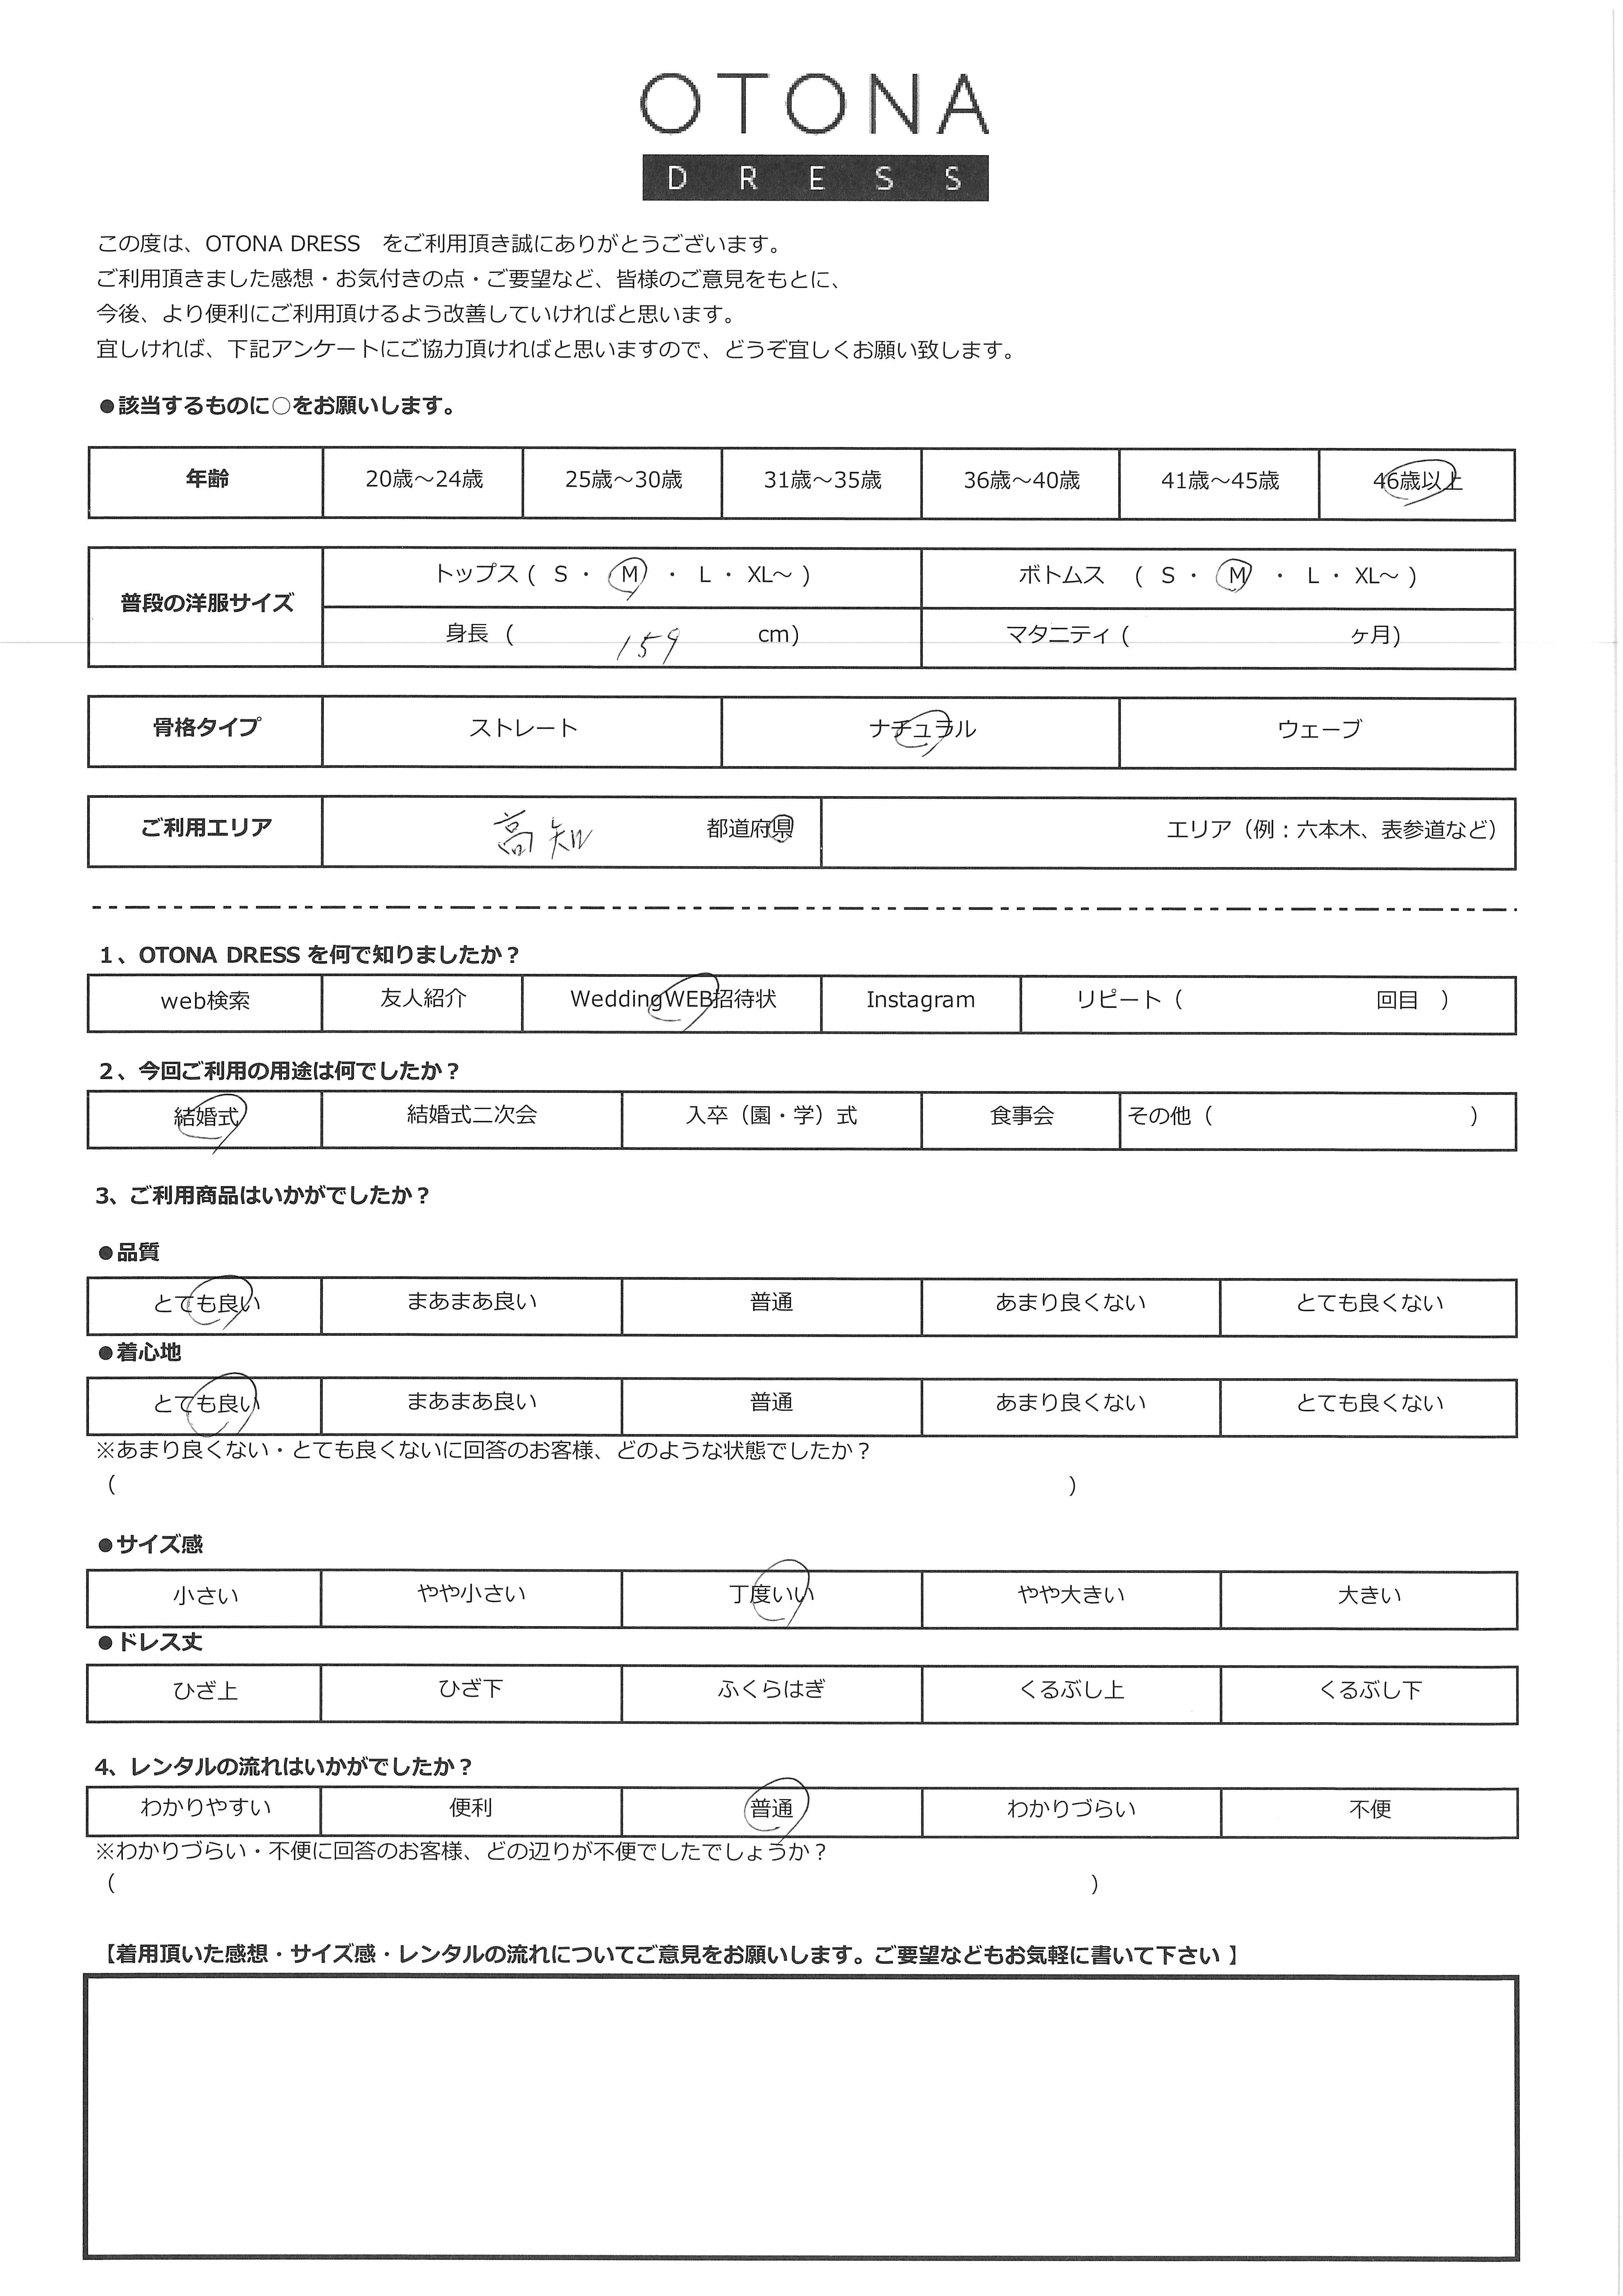 OTONA
DRESS
この度は、OTONA DRESS　をご利用頂き誠にありがとうございます。
ご利用頂きました感想・お気付きの点・ご要望など、皆様のご意見をもとに、
今後、より便利にご利用頂けるよう改善していければと思います。
宜しければ、下記アンケートにご協力頂ければと思いますので、どうぞ宜しくお願い致します。
●該当するものに○をお願いします。
年齢 20歳～24歳 25歳～30歳 31歳～35歳 36歳～40歳 41歳～45歳 46歳以上
普段の洋服サイズ トップス ( S ・ M ・ L ・ XL～ ) ボトムス ( S ・ M ・ L ・ XL～ )
身長 ( 159 cm) マタニティ ( ヶ月)
骨格タイプ ストレート ナチュラル ウェーブ
ご利用エリア 高知 都道府県 エリア（例：六本木、表参道など）
1、OTONA DRESS を何で知りましたか？
web検索 友人紹介 WeddingWEB招待状 Instagram リピート（ 回目 ）
2、今回ご利用の用途は何でしたか？
結婚式 結婚式二次会 入卒（園・学）式 食事会 その他（ ）
3、ご利用商品はいかがでしたか？
●品質
とても良い まあまあ良い 普通 あまり良くない とても良くない
●着心地
とても良い まあまあ良い 普通 あまり良くない とても良くない
※あまり良くない・とても良くないに回答のお客様、どのような状態でしたか？
（ ）
●サイズ感
小さい やや小さい 丁度いい やや大きい 大きい
●ドレス丈
ひざ上 ひざ下 ふくらはぎ くるぶし上 くるぶし下
4、レンタルの流れはいかがでしたか？
わかりやすい 便利 普通 わかりづらい 不便
※わかりづらい・不便に回答のお客様、どの辺りが不便でしたでしょうか？
（ ）
【着用頂いた感想・サイズ感・レンタルの流れについてご意見をお願いします。ご要望などもお気軽に書いて下さい 】